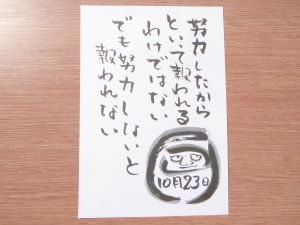 努力したから
といって報われる
わけではない
でも努力しないと
報われない
10月23日